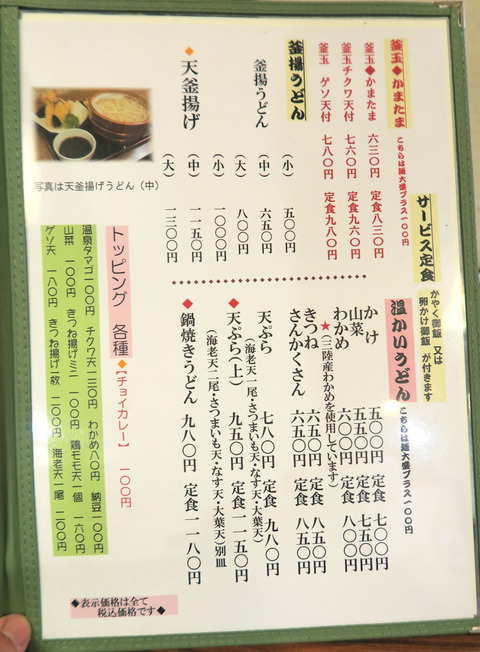 釜玉◆かまたま
こちらは麺大盛プラス100円
釜玉◆かまたま 六三〇円 定食八三〇円
釜玉チクワ天付 七六〇円 定食九六〇円
釜玉 ゲソ天付 七八〇円 定食九八〇円
釜揚うどん
釜揚うどん (小) 五〇〇円
(中) 六五〇円
(大) 八〇〇円
◆天釜揚げ (小) 一〇〇〇円
(中) 一一五〇円
(大) 一三〇〇円
写真は天釜揚げうどん(中)
サービス定食
かやく御飯 又は
卵かけ御飯 が付きます
温かいうどん
こちらは麺大盛プラス100円
かけ 五〇〇円 定食 七〇〇円
山菜 五五〇円 定食 七五〇円
わかめ 六〇〇円 定食 八〇〇円
★(三陸産わかめを使用しています)
きつね 六五〇円 定食 八五〇円
さんかくさん 六五〇円 定食 八五〇円
天ぷら 七八〇円 定食 九八〇円
(海老天一尾・さつまいも天・なす天・大葉天)
◆天ぷら(上) 九五〇円 定食一一五〇円
(海老天二尾・さつまいも天・なす天・大葉天)別皿
◆鍋焼きうどん 九八〇円 定食一一八〇円
トッピング 各種
◆【チョイカレー】 一〇〇円
温泉タマゴ一〇〇円 チクワ天一三〇円 わかめ八〇円 納豆一〇〇円
山菜 一〇〇円 きつね揚げミニ 一〇〇円 鶏モモ天一個 一六〇円
ゲソ天 一八〇円 きつね揚げ一枚 二〇〇円 海老天一尾 二〇〇円
◆表示価格は全て
税込価格です◆